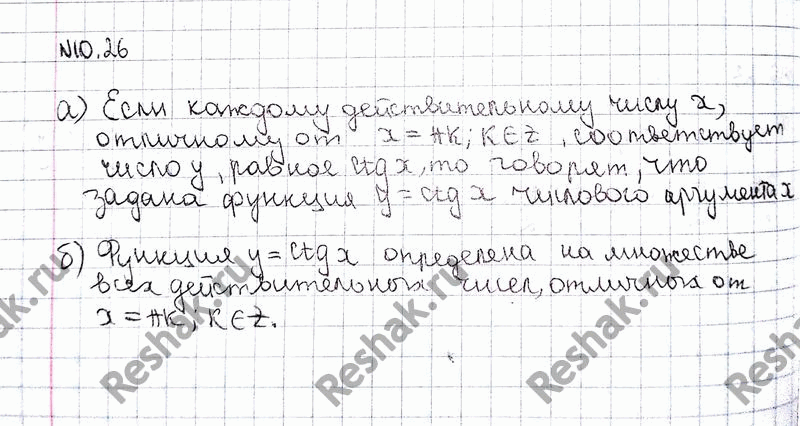 N10.26
а) Если каждому действительному числу x,
отличному от x = πK; K∈Z, соответствует
число y, равное ctg x, то говорят, что
задана функция y = ctg x числового аргумента x
б) Функция y = ctg x определена на множестве
всех действительных чисел, отличных от
x = πK; K∈Z.
Reshak.ru
Reshak.ru
Reshak.ru
Reshak.ru